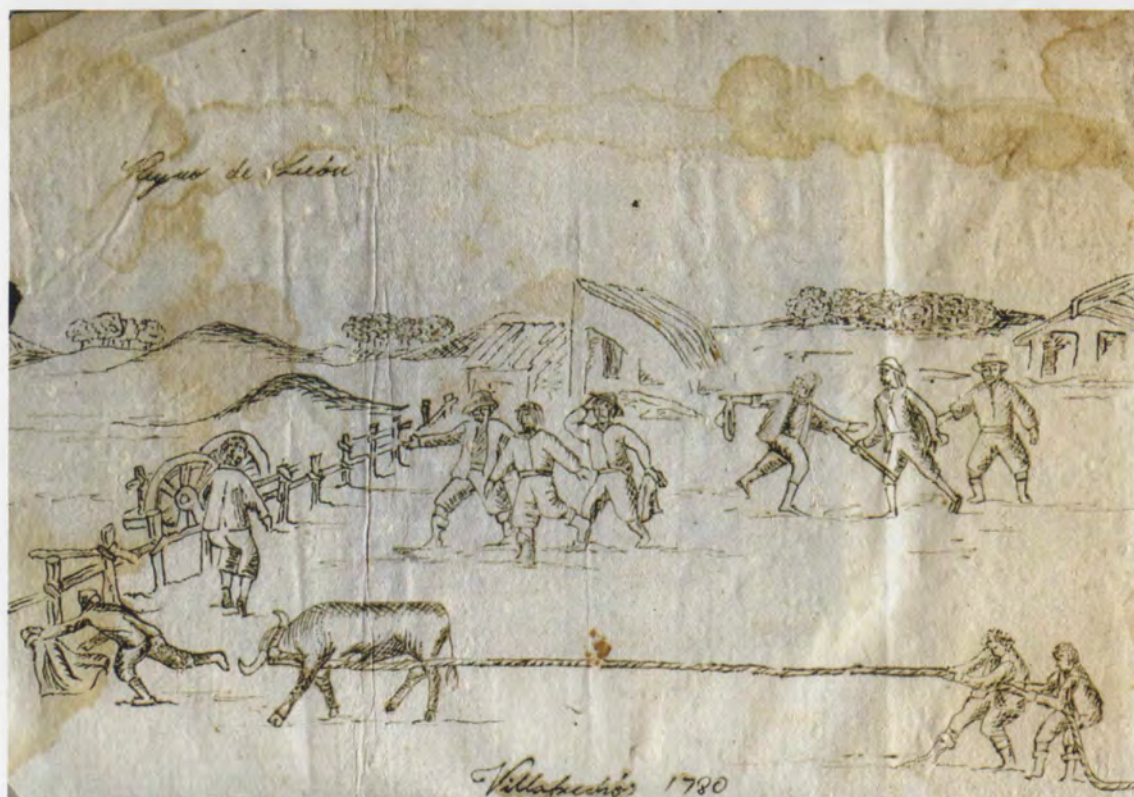 Reyno de León
Villafrechós 1780